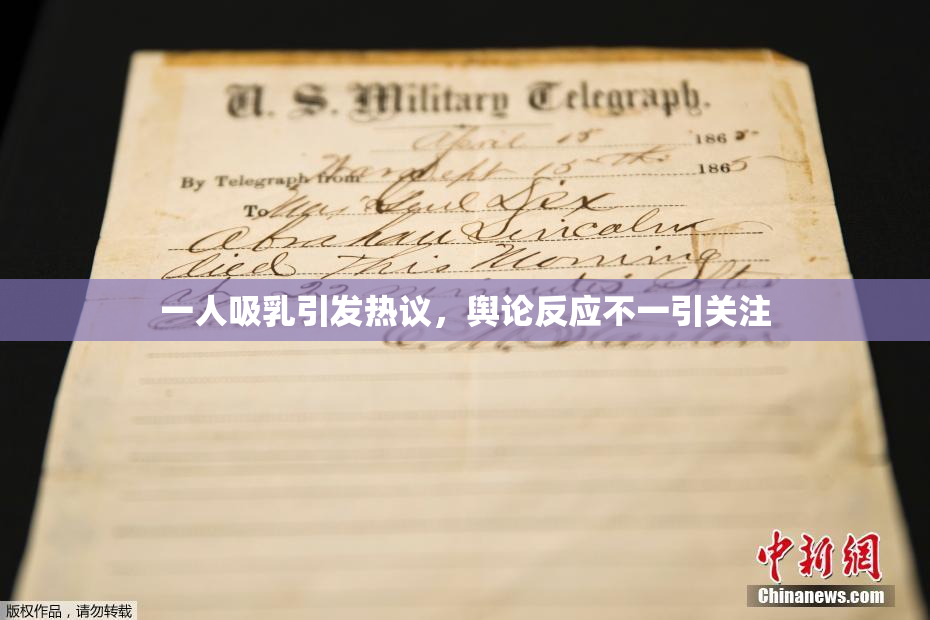 U. S. Military Telegraph.
April 15 1865
By Telegraph from War Dept 15th 1865
To Maj Genl Dix
Abraham Lincoln
died This Morning
at 22 minutes after
一人吸乳引发热议，舆论反应不一引关注
E. M. Stanton
中新网
Chinanews.com
版权作品，请勿转载